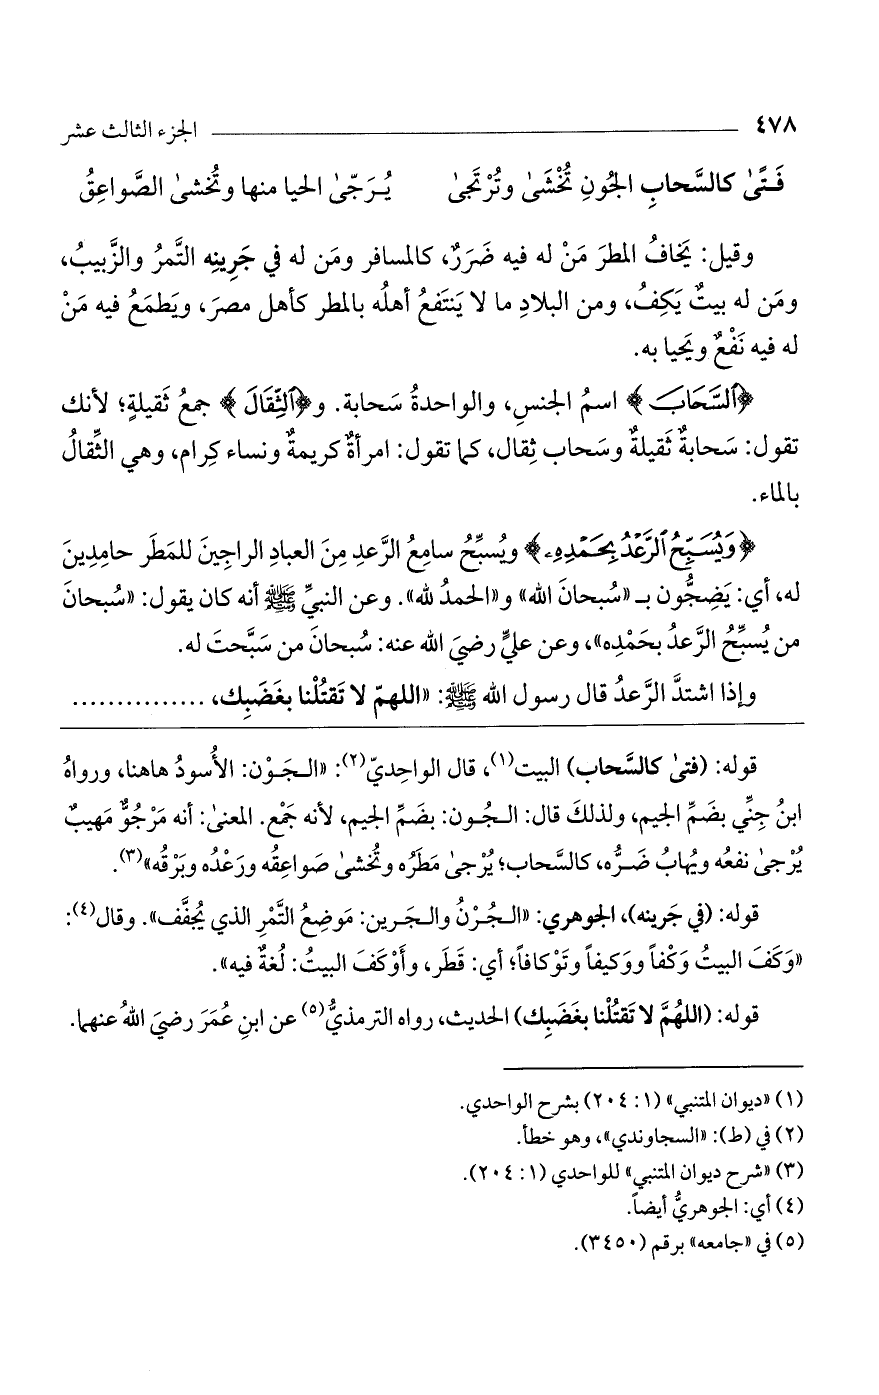 ٤٧٨ الجزء الثالث عشر
فَـتًى كالسَّحابِ الجُونِ تُخْشَى وتُرْتَجَى يُـرَجّى الحيا منها وتُخشى الصَّواعِقُ
وقيل: يَخافُ المطرَ مَنْ له فيه ضَرَرٌ، كالمسافر ومَن له في جَرِينِه التَّمرُ والزَّبيبُ،
ومَن له بيتٌ يَكِفُ، ومن البلادِ ما لا يَنتَفعُ أهلُه بالمطر كأهل مصرَ، ويَطمَعُ فيه مَنْ
له فيه نَفْعٌ ويَحيا به.
﴿ٱلسَّحَابَ﴾ اسمُ الجنسِ، والواحدةُ سَحابة. و﴿ٱلثِّقَالَ﴾ جمعُ ثَقيلةٍ؛ لأنك
تقول: سَحابةٌ ثَقيلةٌ وسَحاب ثِقال، كما تقول: امرأةٌ كريمةٌ ونساء كِرام، وهي الثِّقالُ
بالماء.
﴿وَيُسَبِّحُ ٱلرَّعْدُ بِحَمْدِهِۦ﴾ ويُسبِّحُ سامِعُ الرَّعدِ مِنَ العبادِ الراجِينَ للمَطَر حامِدِينَ
له، أي: يَضِجُّون بـ «سُبحانَ الله» و«الحمدُ لله». وعن النبيِّ ﷺ أنه كان يقول: «سُبحانَ
من يُسبِّحُ الرَّعدُ بحَمْدِه»، وعن عليٍّ رضيَ الله عنه: سُبحانَ من سَبَّحتَ له.
وإذا اشتدَّ الرَّعدُ قال رسول الله ﷺ: «اللهمّ لا تَقتُلْنا بغَضَبِك، ...............
قوله: (فتى كالسَّحاب) البيت(١)، قال الواحِديّ(٢): «الـجَـوْن: الأسودُ هاهنا، ورواهُ
ابنُ جِنِّي بضَمِّ الجيم، ولذلكَ قال: الـجُـون: بضَمِّ الجيم، لأنه جَمْع. المعنى: أنه مَرْجُوٌّ مَهيبٌ
يُرْجى نفعُه ويُهابُ ضَـرُّه، كالسَّحاب؛ يُرْجى مَطَرُه وتُخشى صَواعِقُه ورَعْدُه وبَرْقُه»(٣).
قوله: (في جَرينه)، الجوهري: «الـجُـرْنُ والـجَـرين: مَوضِعُ التَّمْرِ الذي يُجفَّف». وقال(٤):
«وَكَفَ البيتُ وَكْفاً ووَكيفاً وتَوْكافاً؛ أي: قَطَر، وأَوْكَفَ البيتُ: لُغةٌ فيه».
قوله: (اللهُمَّ لا تَقتُلْنا بغَضَبِك) الحديث، رواه الترمذيُّ(٥) عن ابنِ عُمَرَ رضيَ اللهُ عنهما.
(١) «ديوان المتنبي» (١: ٢٠٤) بشرح الواحدي.
(٢) في (ط): «السجاوندي»، وهو خطأ.
(٣) «شرح ديوان المتنبي» للواحدي (١: ٢٠٤).
(٤) أي: الجوهريُّ أيضاً.
(٥) في «جامعه» برقم (٣٤٥٠).